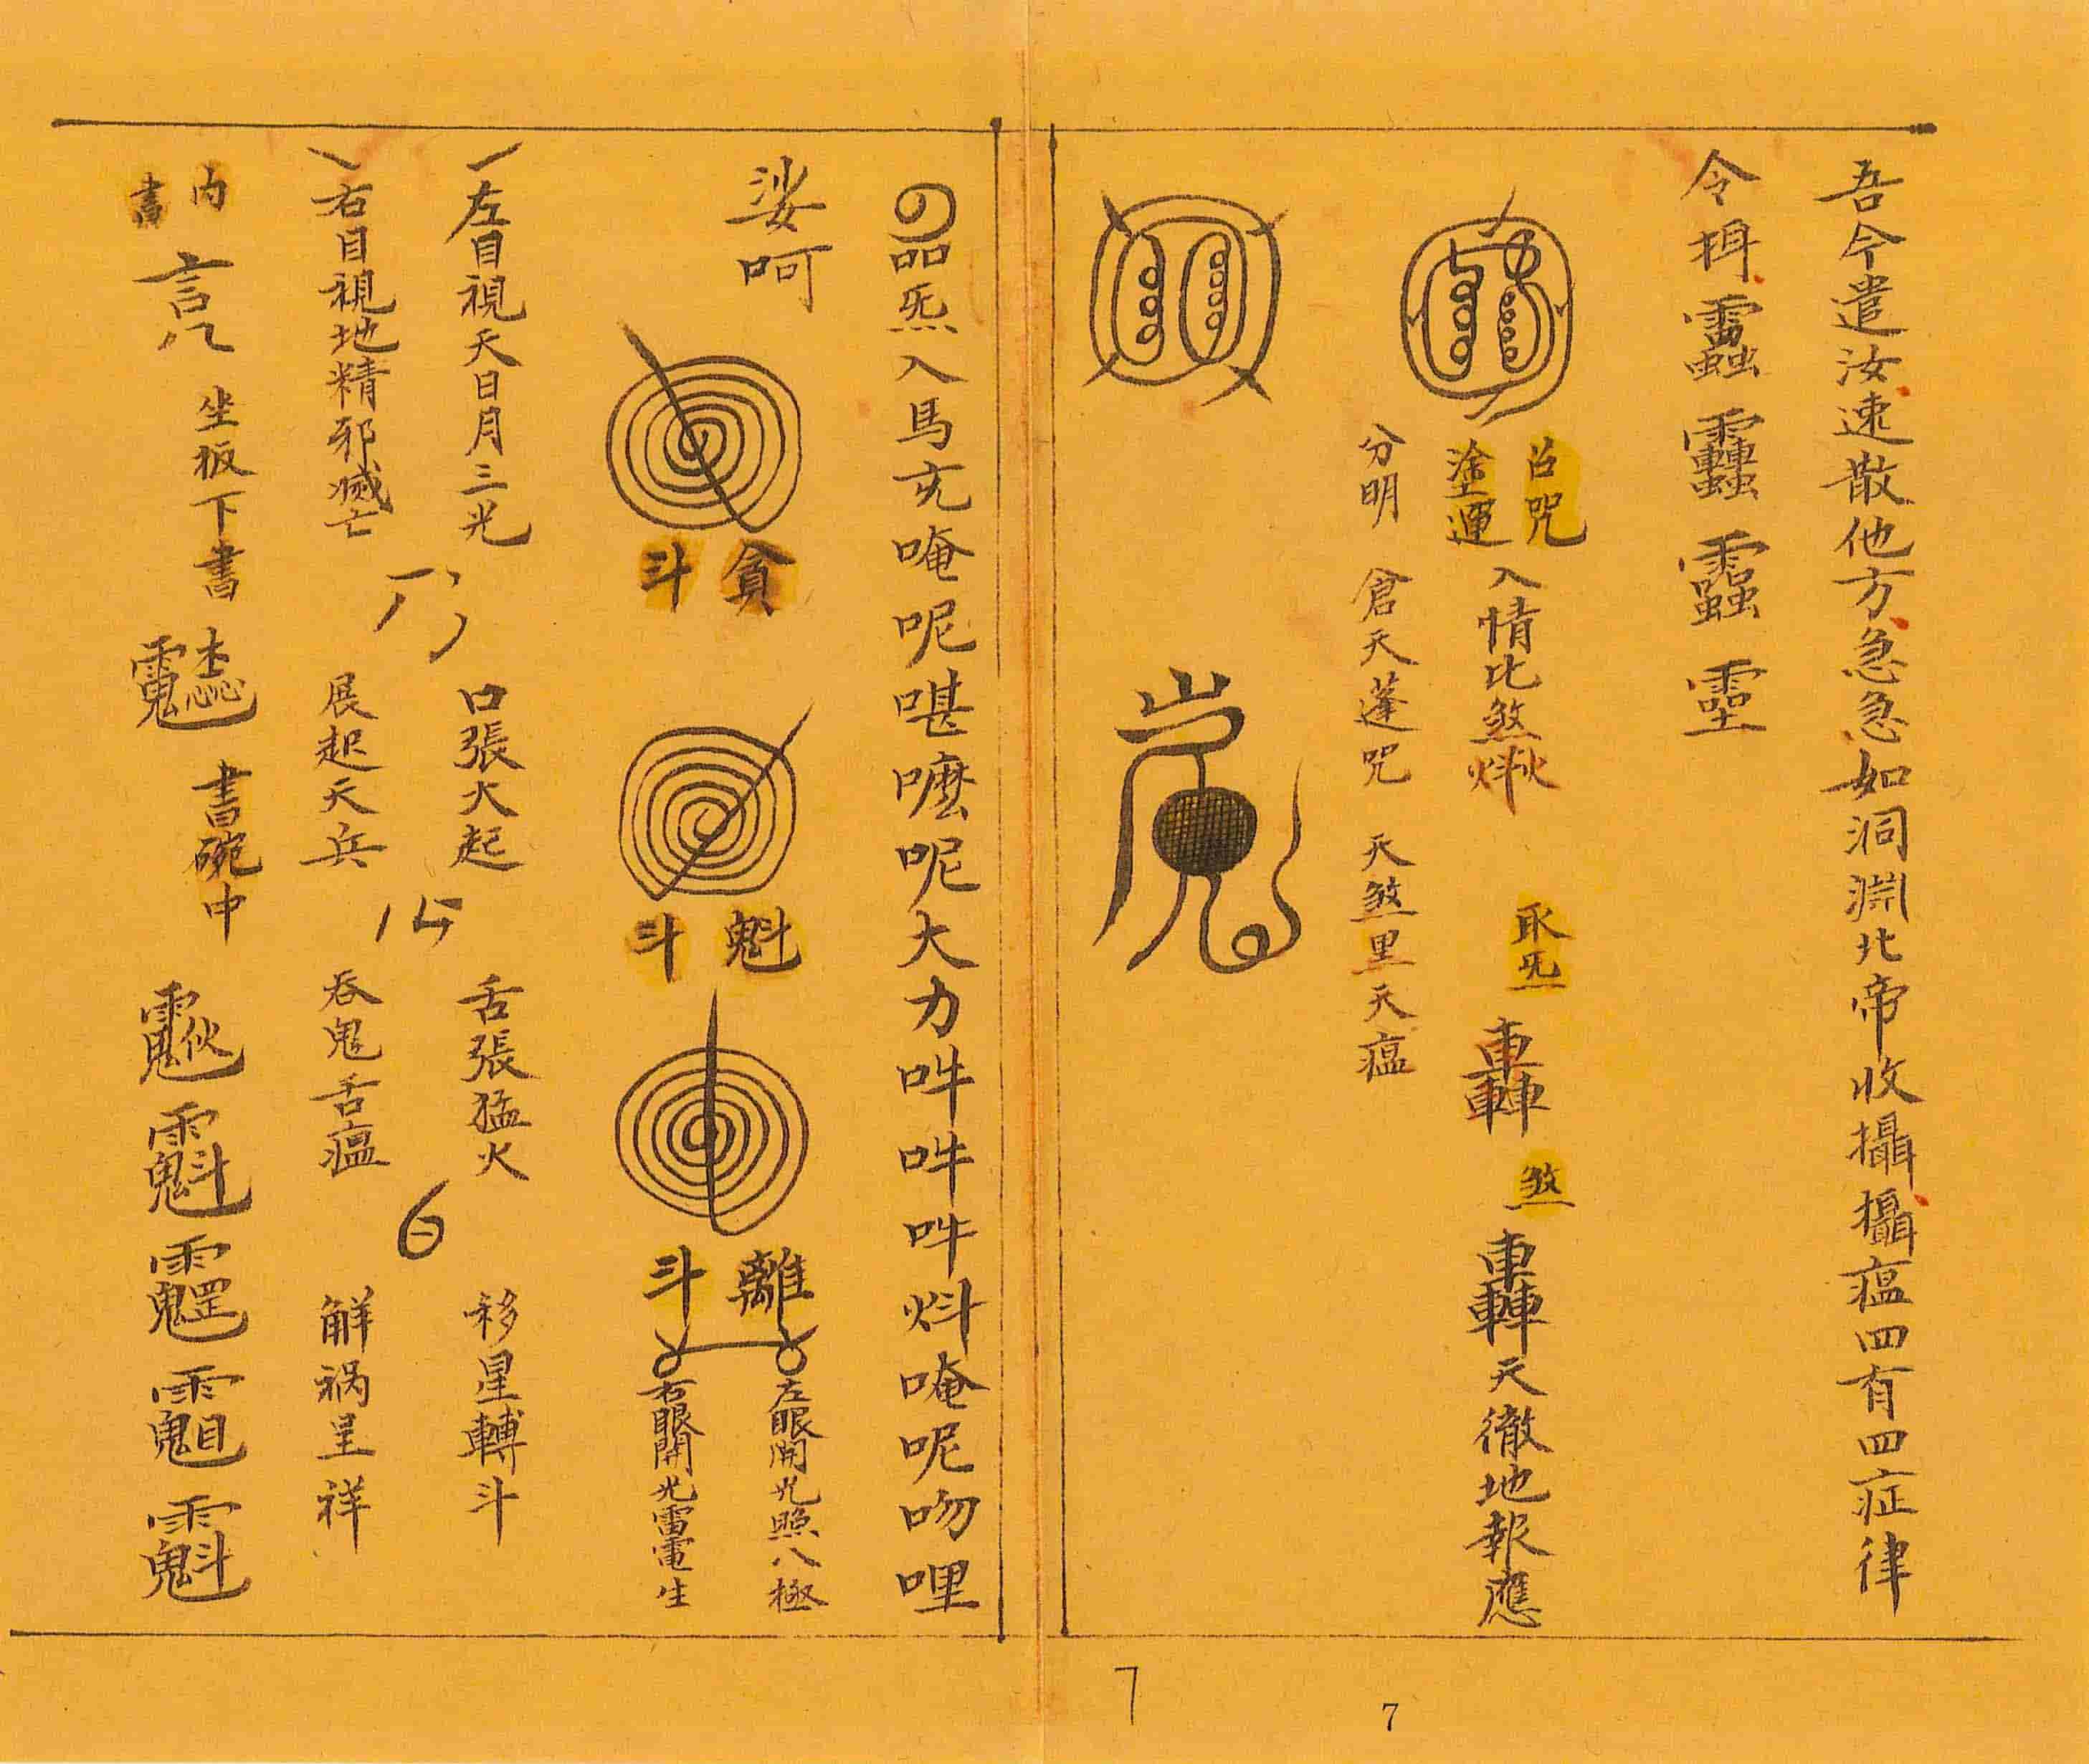 吾今遣汝速散他方急急如洞淵北帝收攝攝瘟四有四症律
令
召咒
塗運
入情比煞
取炁
煞
天徹地報應
分明
倉天蓬咒
天煞里天瘟
品炁入馬唵呢㗁嚒呢大力吽吽吽唵呢吻哩
娑呵
貪斗
魁斗
離斗
左眼開光照八極
右眼開光雷電生
左目視天日月三光
口張大起
舌張猛火
移星轉斗
右目視地精邪滅亡
展起天兵
吞鬼舌瘟
解禍呈祥
内書
坐板下書
書碗中
7
7